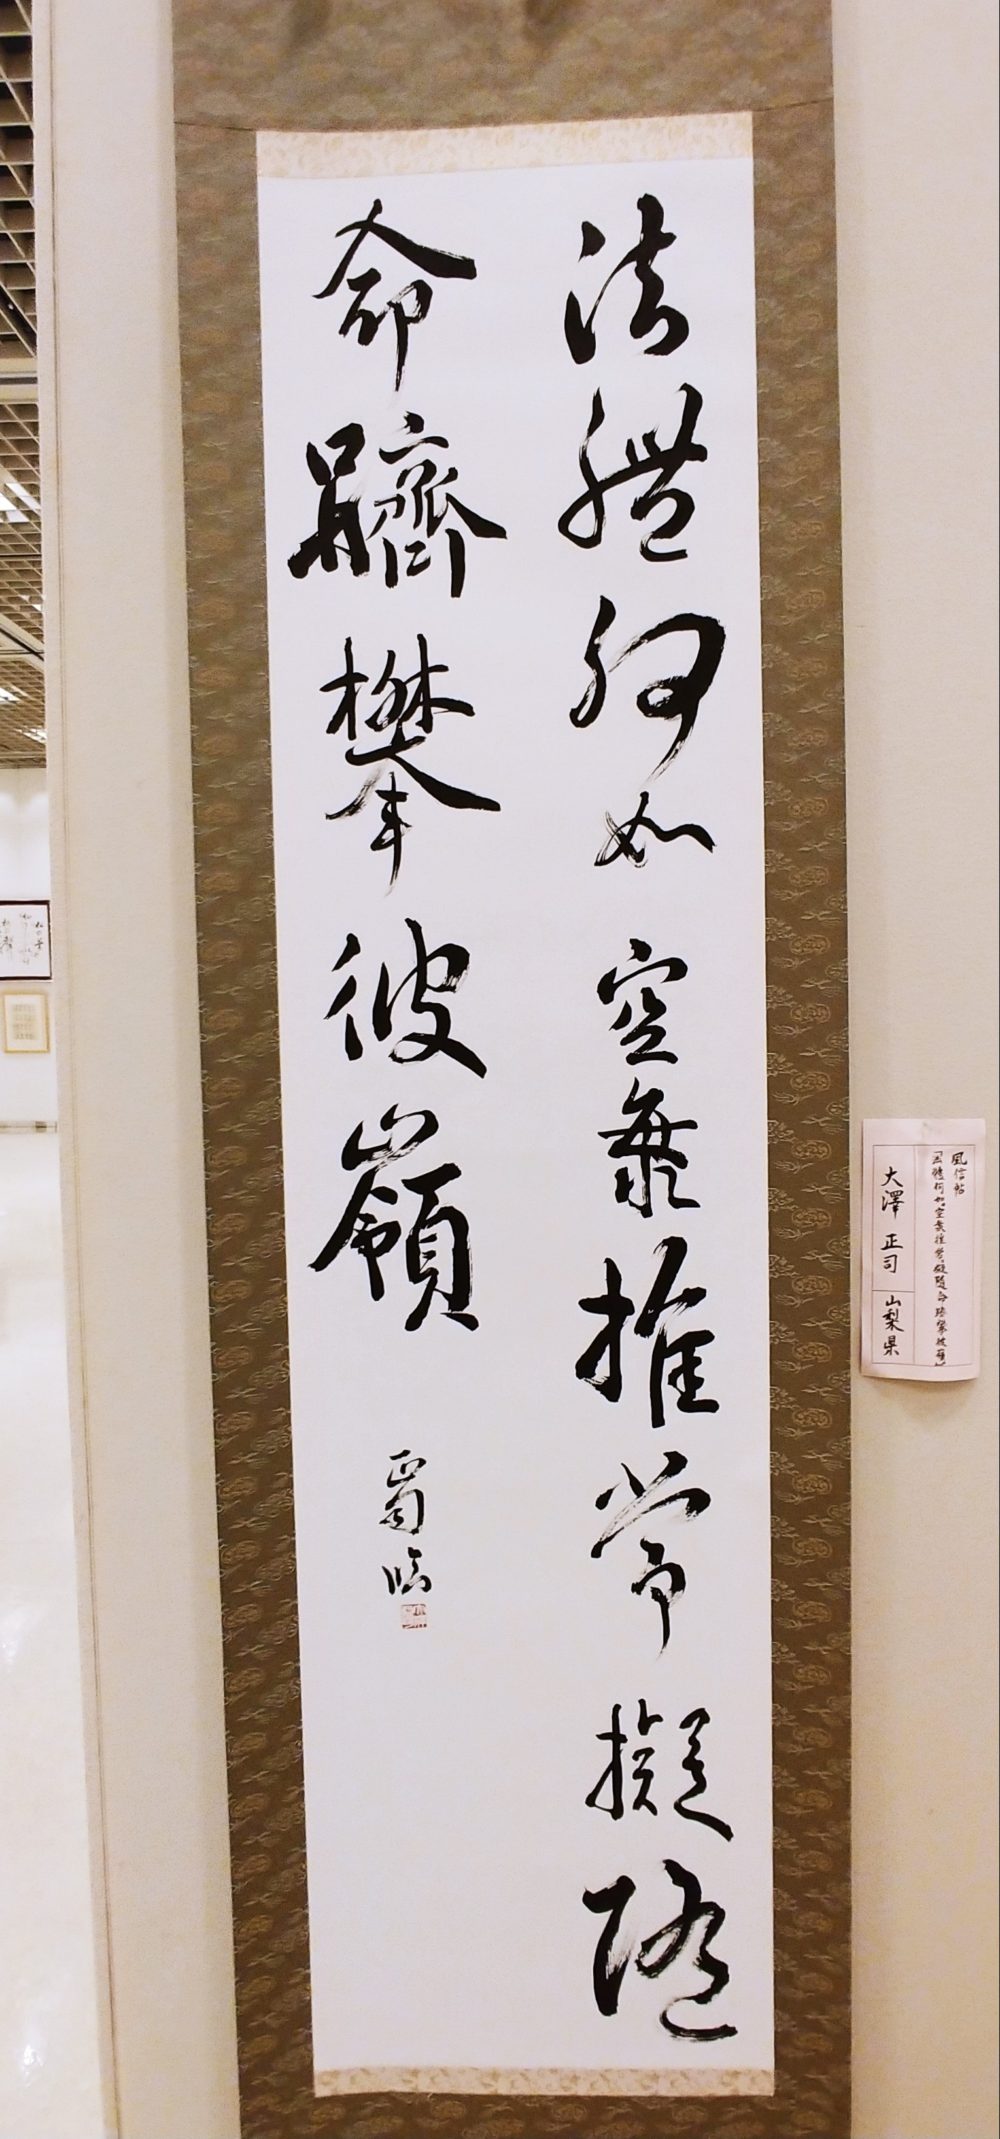 法體何如空海推常擬隨
命躋攀彼嶺
臨
風信帖
「法體何如。空海推常。擬隨命躋攀彼嶺」
大澤正司
山梨県